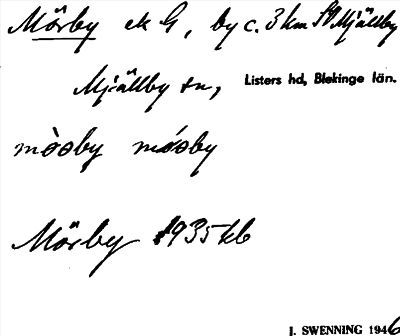 Mörby ek G, by c. 3 km SV Mjällby
Mjällby sn, Listers hd, Blekinge län.
Mörby 1935 kb
J. SWENNING 1946